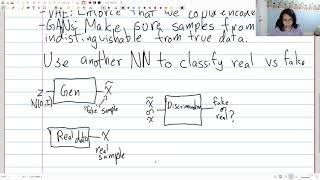 VAE: Enforce that we could encode
GANs: Make sure samples from
indistinguishable from true data.
Use another NN to classify real vs fake
Z
N(0,I)
Gen
x̃
"fake sample"
x̃
or
x
Discriminator
fake
or
real?
Real data
x
real
sample